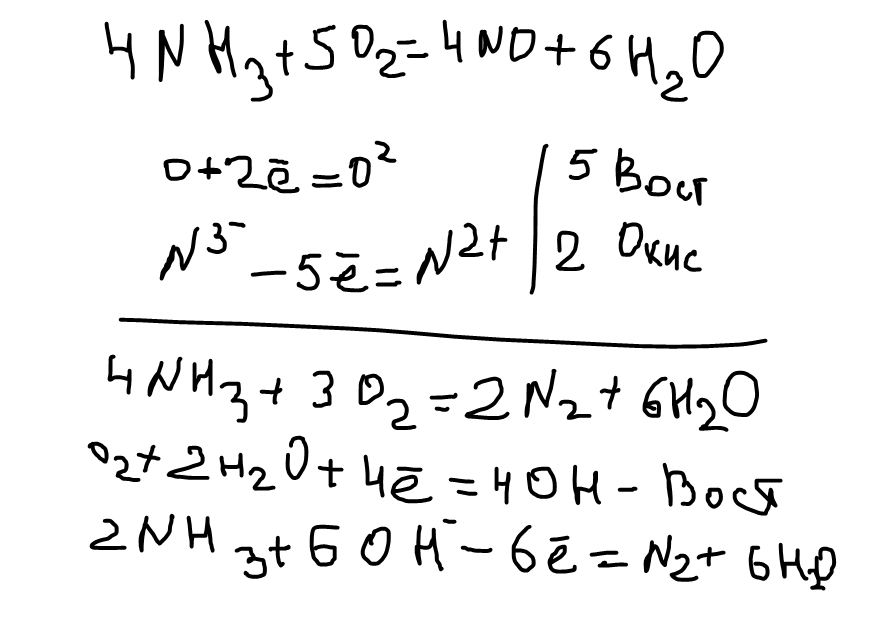 4NH₃+5O₂=4NO+6H₂O
O+2ē=O² | 5 Вост
N³⁻-5ē=N²⁺ | 2 Окис
4NH₃+3O₂=2N₂+6H₂O
O₂+2H₂O+4ē=4OH- Вост
2NH₃+6OH⁻-6ē=N₂+6H₂O